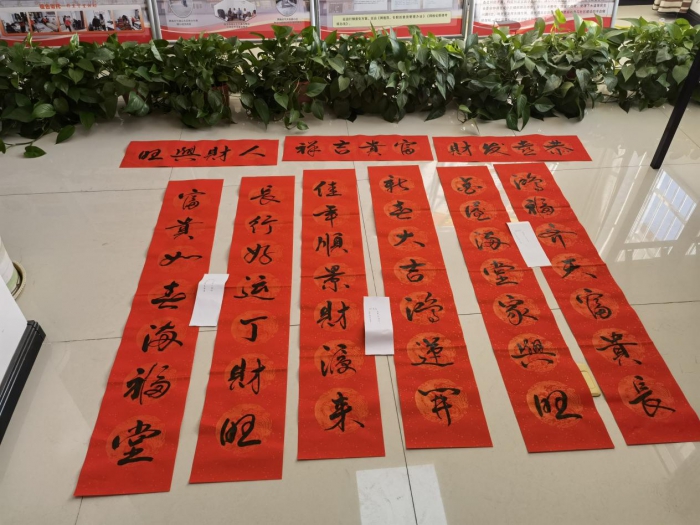 恭喜发財
富貴吉祥
人財興旺
鴻福齐天富貴長
满堂家興旺
新春大吉鴻運開
佳年順景財源来
長行好运丁財旺
富貴如满福堂